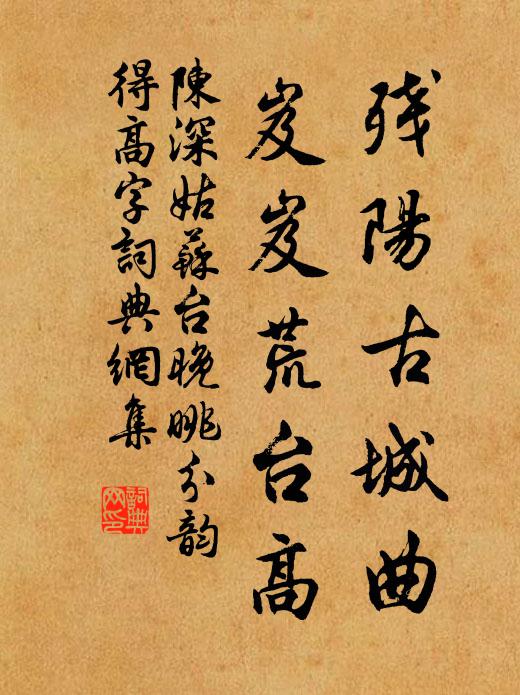 残陽古城曲
岌岌荒台高
陳深姑蘇台晚眺分韵
得高字詞典網集
詞典网印